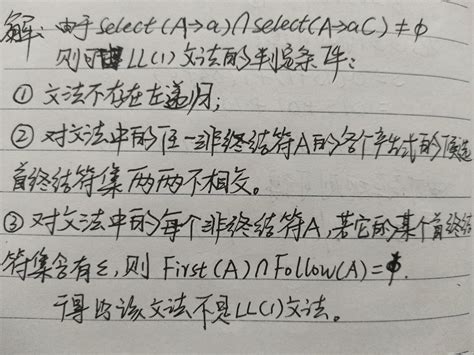 解：由于select(A→a)∩select(A→aC)≠φ
则可由LL(1)文法的判定条件：
① 文法不存在左递归；
② 对文法中的任一非终结符A的各个产生式的候选
首终结符集两两不相交。
③ 对文法中的每个非终结符A，若它的某个首终结
符集含有ε，则 First(A)∩Follow(A)=φ.
可得出该文法不是LL(1)文法。